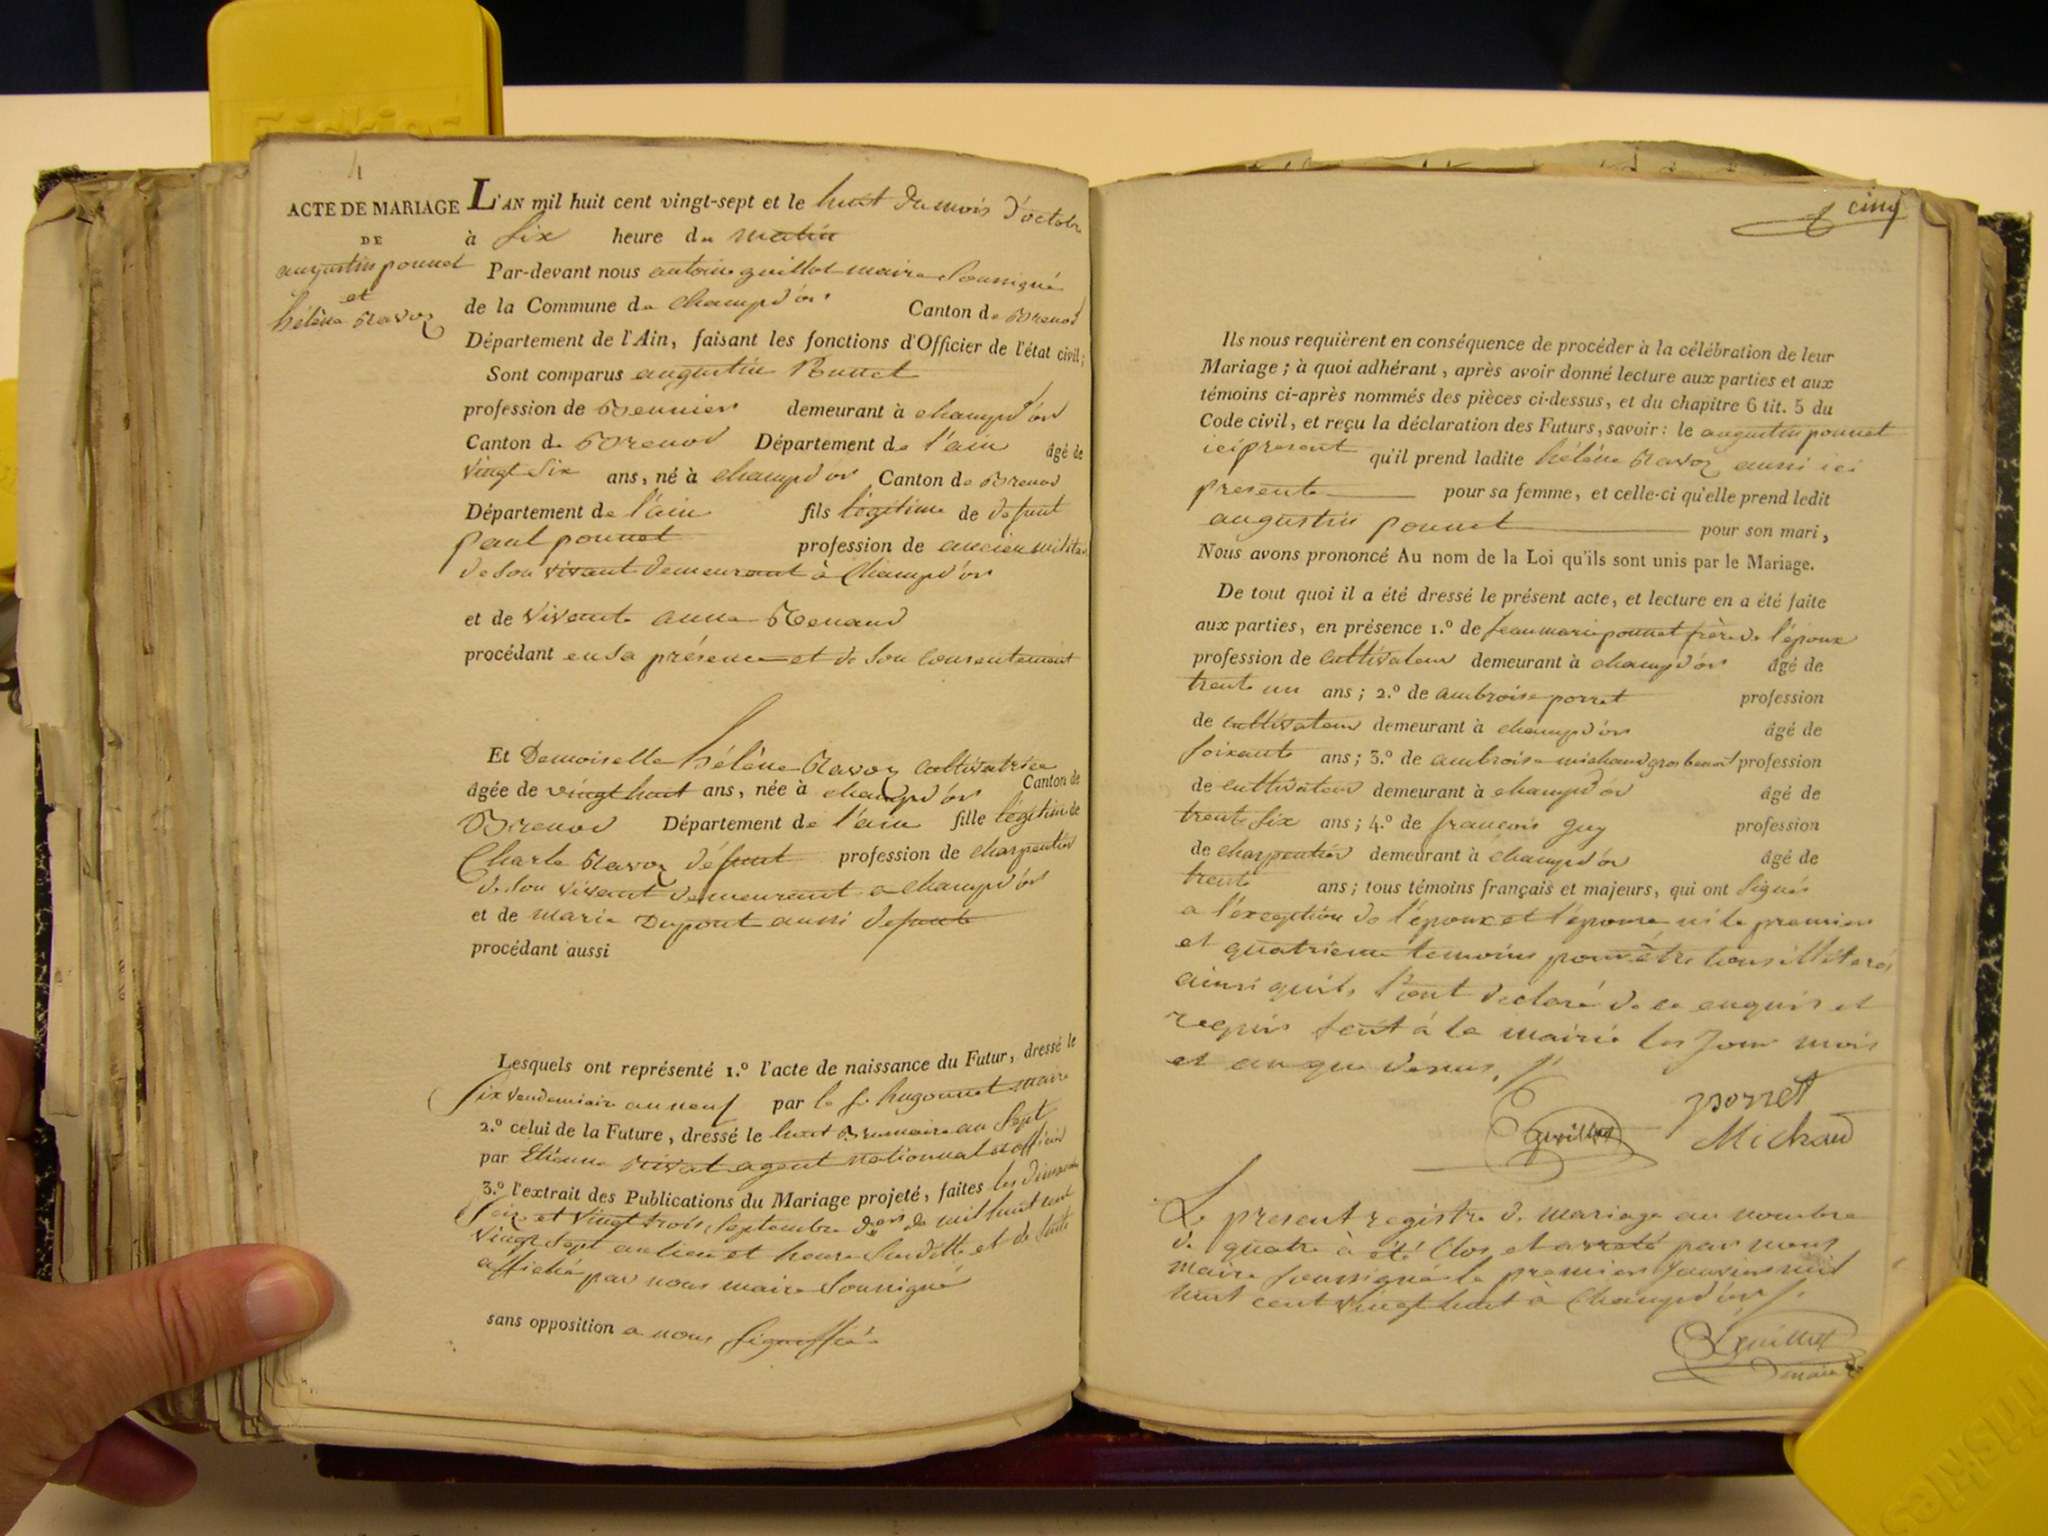 ACTE DE MARIAGE
DE
augustin ponnet
et
hélène Ravoz
L'AN mil huit cent vingt-sept et le huit du mois d'octobre
à six heure du matin
Par-devant nous antoine guillot maire soussigné
de la Commune de champd'or Canton de Brenod
Département de l'Ain, faisant les fonctions d'Officier de l'état civil;
Sont comparus augustin Ponnet
profession de demeurant à champd'or
Canton de Brenod Département de l'ain âgé de
vingt six ans, né à champd'or Canton de Brenod
Département de l'ain fils légitime de defunt
paul ponnet profession de ancien militai
de son vivant demeurant à Champd'or
et de vivante anne Renaud
procédant en sa présence et de son consentement
Et Demoiselle hélène Ravoz cultivatrice
âgée de vingt huit ans, née à champd'or Canton de
Brenod Département de l'ain fille légitime de
Charle Ravoz défunt profession de charpentier
de son vivant demeurant a champd'or
et de marie Dupont aussi defunte
procédant aussi
Lesquels ont représenté 1.º l'acte de naissance du Futur, dressé le
six vendemiaire an neuf par le s. hugonnet maire
2.º celui de la Future, dressé le huit Brumaire an sept
par Etienne Rivat agent nationnal et officier
3.º l'extrait des Publications du Mariage projeté, faites les dimanche
seize et vingt trois septembre de mil huit cent
vingt sept au lieu et heure susdétte et de suite
affiché par nous maire soussigné
sans opposition a nous signiffiée
cinq
Ils nous requièrent en conséquence de procéder à la célébration de leur
Mariage; à quoi adhérant, après avoir donné lecture aux parties et aux
témoins ci-après nommés des pièces ci-dessus, et du chapitre 6 tit. 5 du
Code civil, et reçu la déclaration des Futurs, savoir: le augustin ponnet
ici present qu'il prend ladite hélène Ravoz aussi ici
presente pour sa femme, et celle-ci qu'elle prend ledit
augustin ponnet pour son mari,
Nous avons prononcé Au nom de la Loi qu'ils sont unis par le Mariage.
De tout quoi il a été dressé le présent acte, et lecture en a été faite
aux parties, en présence 1.º de jean marie ponnet frère de l'époux
profession de cultivateur demeurant à champd'or âgé de
trente un ans; 2.º de ambroise porret profession
de cultivateur demeurant à champd'or âgé de
soixante ans; 3.º de ambroise michaud gros benoit profession
de cultivateur demeurant à champd'or âgé de
trente six ans; 4.º de francois guy profession
de charpentier demeurant à champd'or âgé de
trente ans; tous témoins français et majeurs, qui ont signés
a l'exception de l'époux et l'épouse ni le premier
et quatrieme temoins pour être tous illétérés
ainsi quils l'ont déclaré de ce enquis et
requis fait à la mairie les jour mois
et an que dessus
Guillot porret
Michaud
Le present registre de mariage au nombre
de quatre à été Clos et arreté par nous
maire soussigné le premier janvier mil
huit cent vingt huit à Champd'or
Guillot
maire